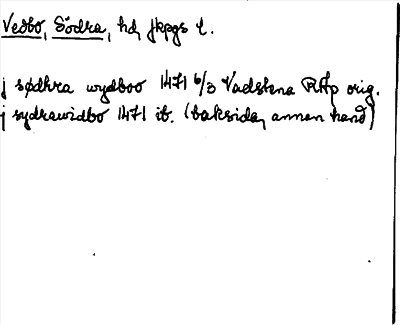 Vedbo, Södra, hd, Jkpgs l.
j sødhra wydboo 1471 6/3 Vadstena RAp orig.
j sydrawidbo 1471 ib. (baksida, annan hand)